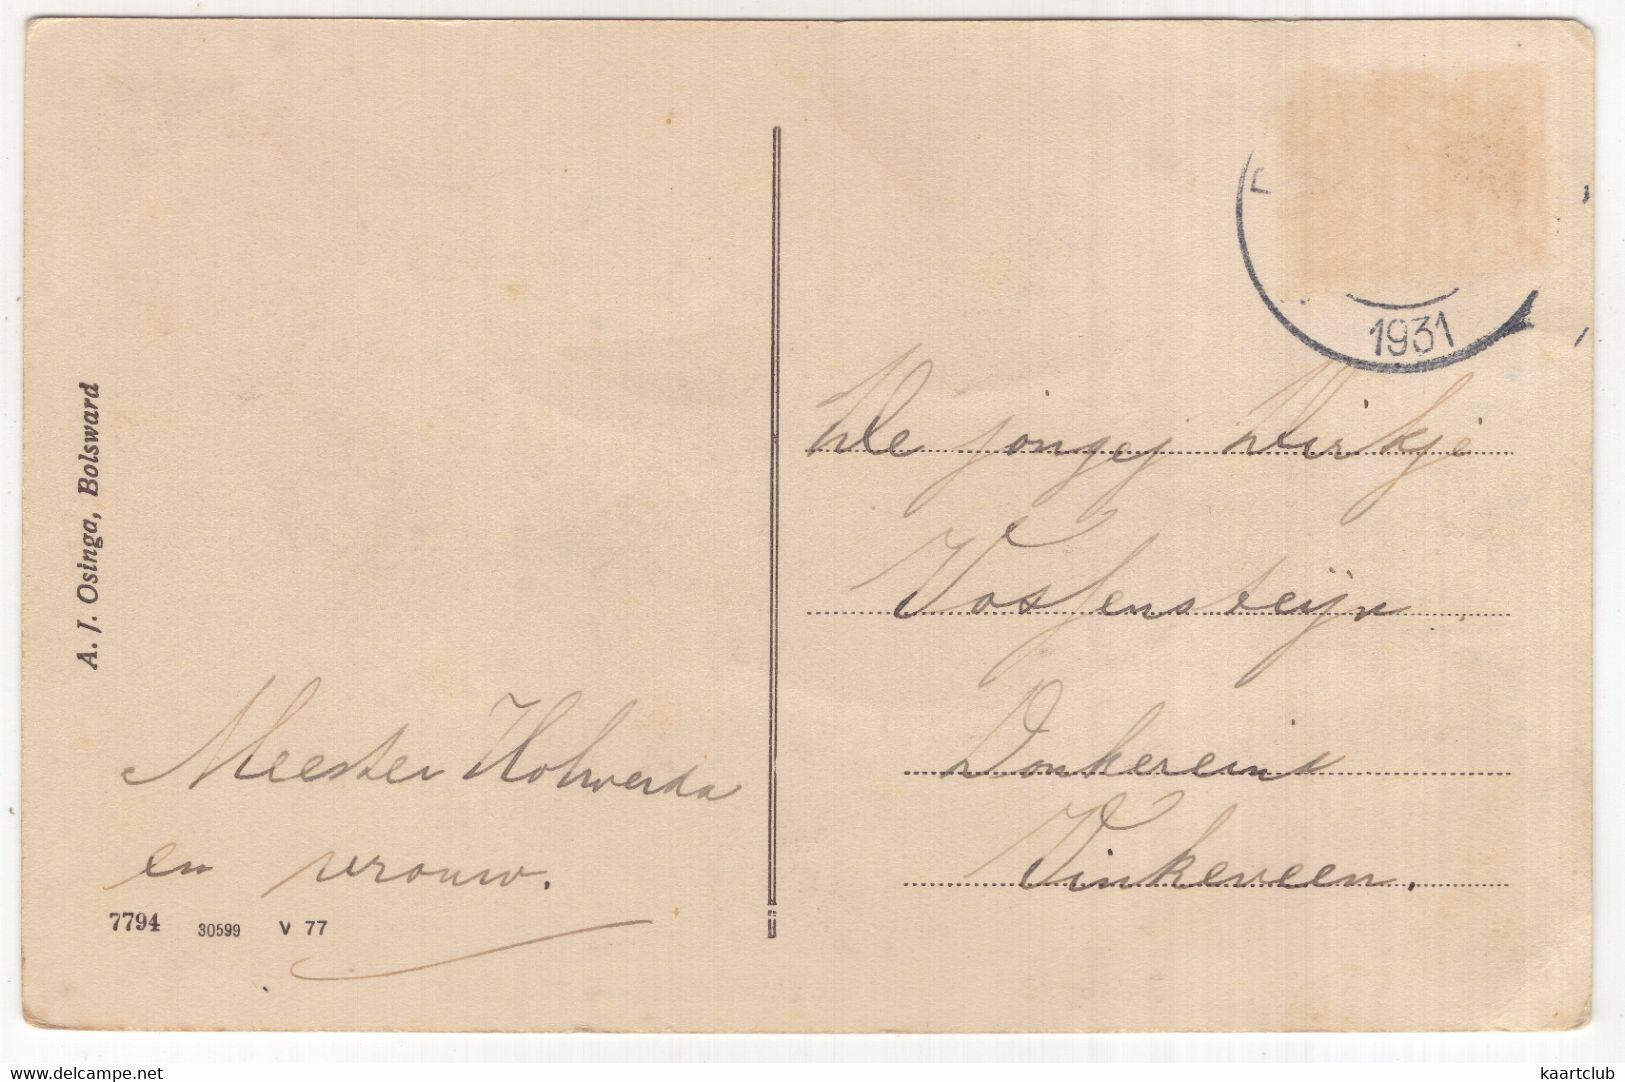 A. J. Osinga, Bolsward
Meester Holwerda
en vrouw.
7794 30599 V 77
1931
De jongej Dirkje
Vossensteijn
Donkereind
Vinkeveen.
www.delcampe.net
kaartclub